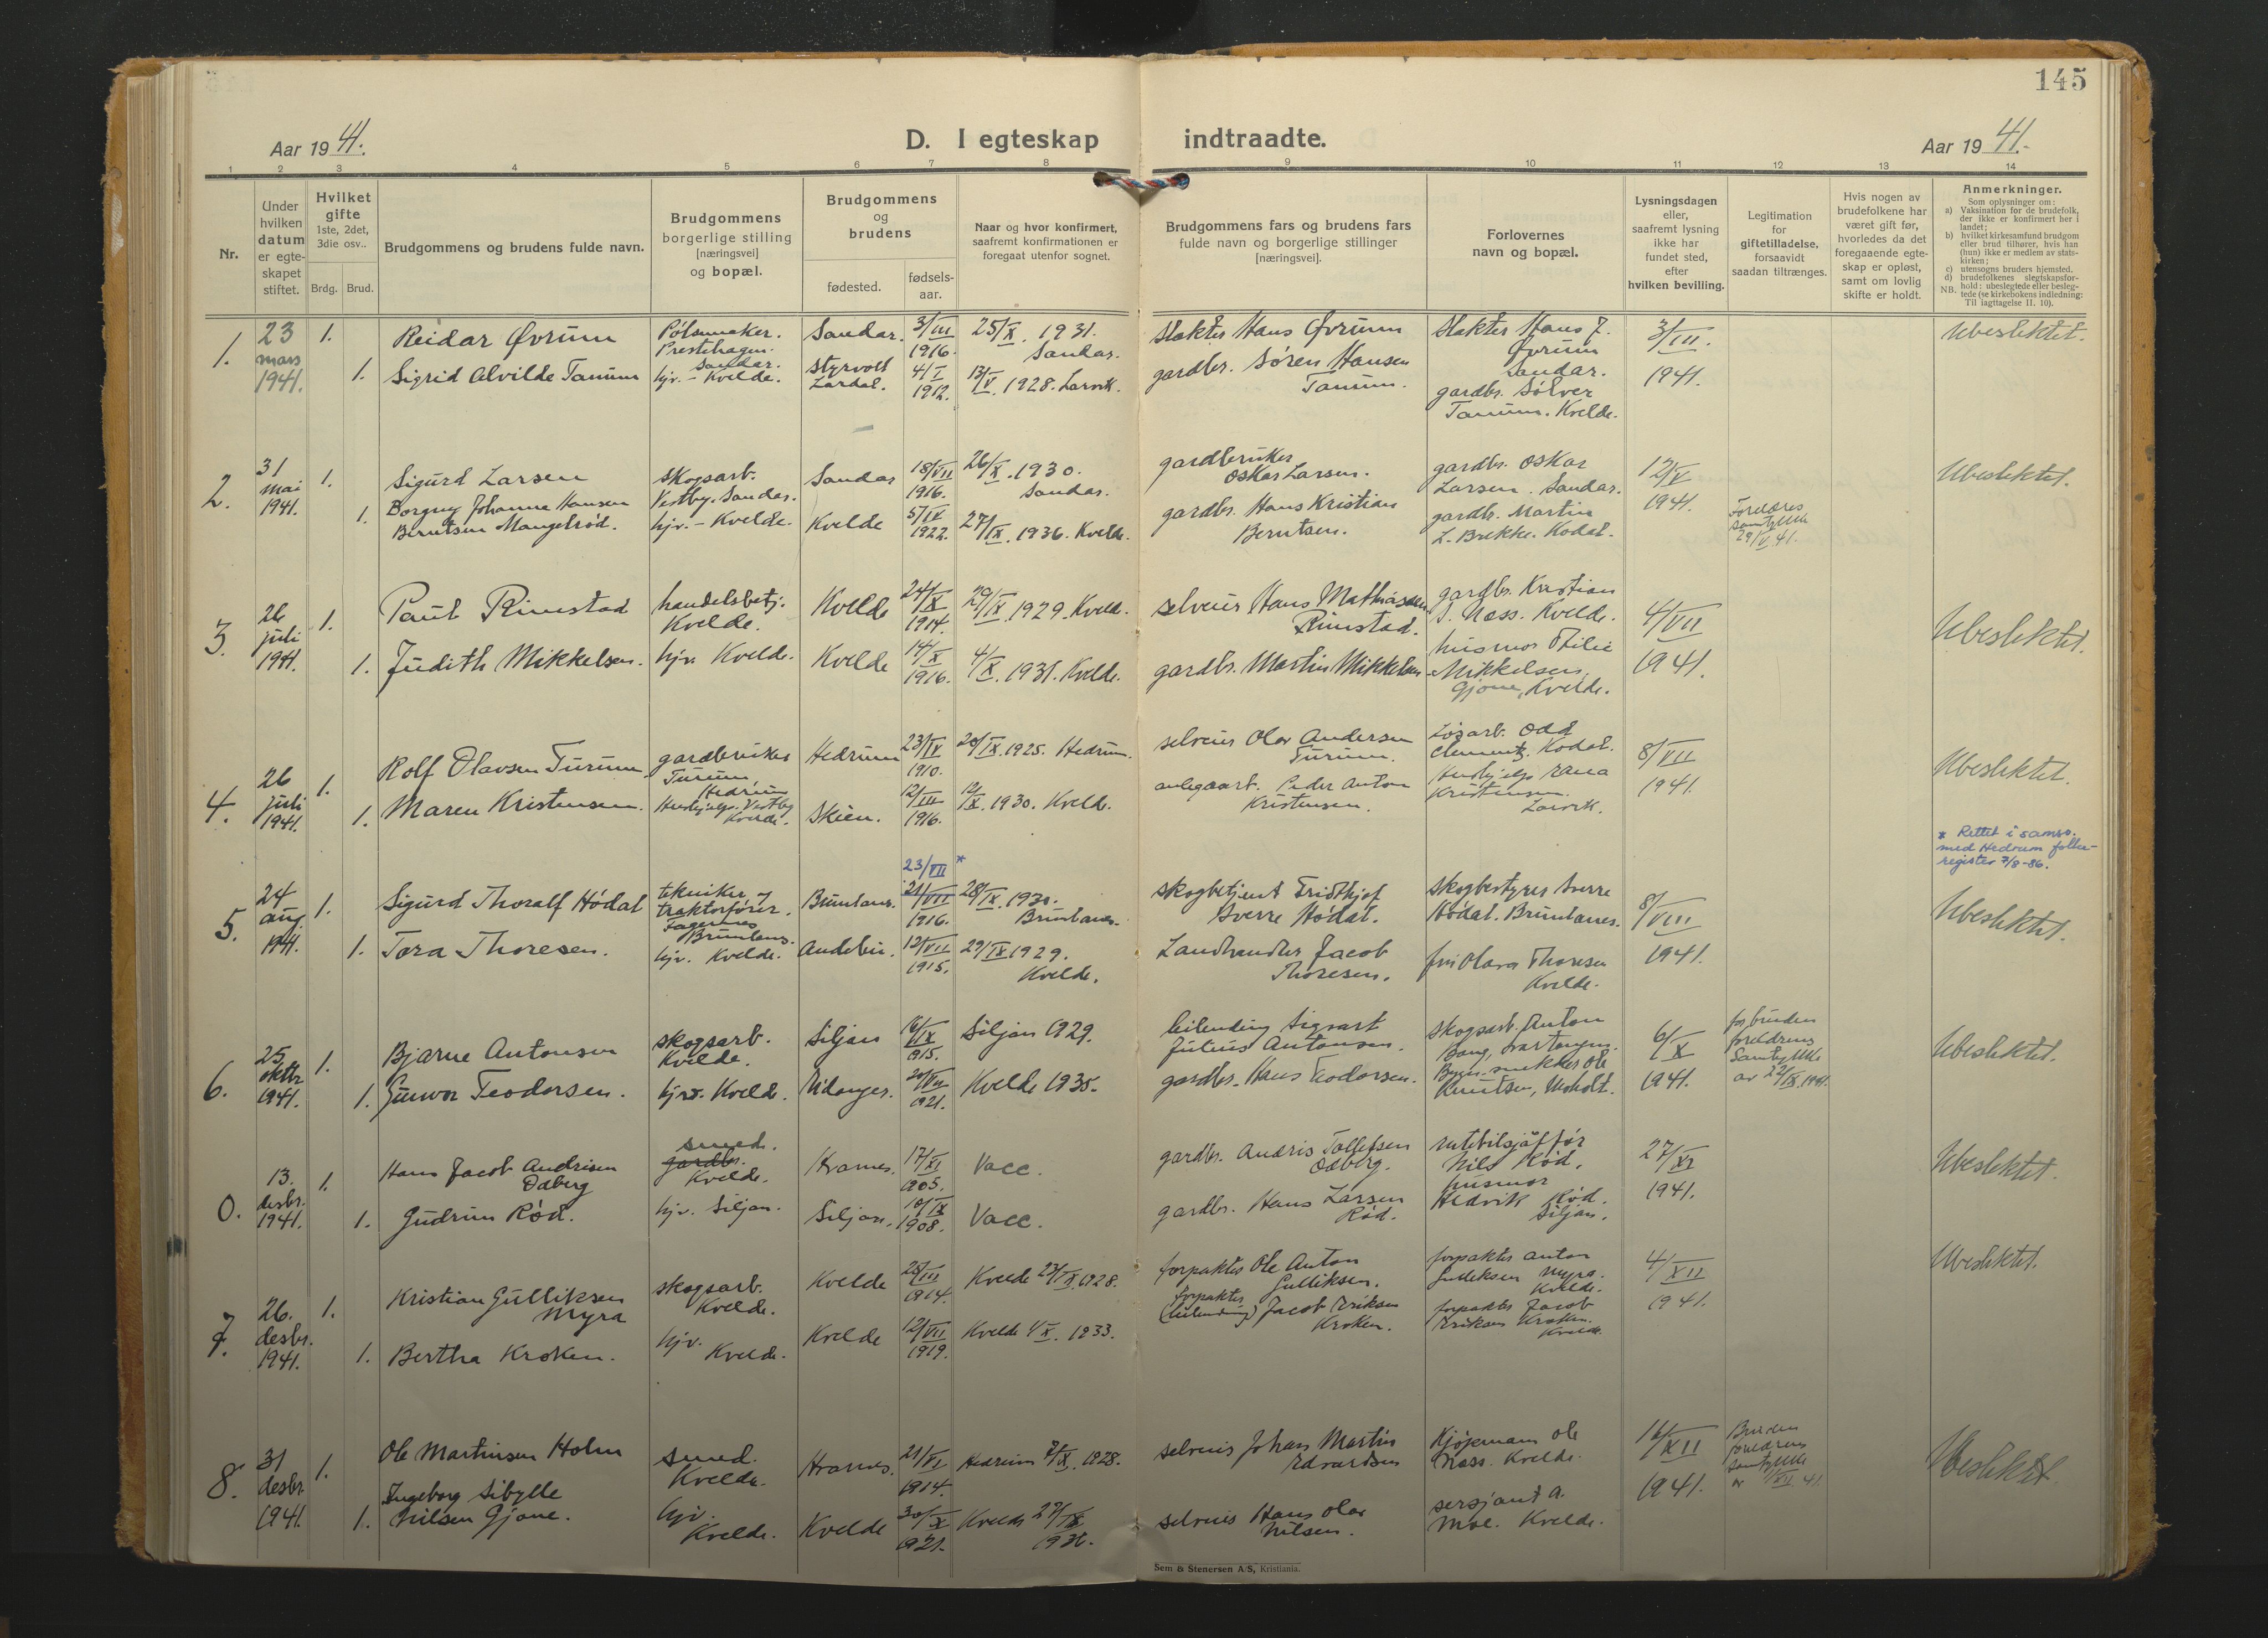 145
Aar 1941.
D. I egteskap indtraadte.
Aar 1941.
1 2 3 4 5 6 7 8 9 10 11 12 13 14
Nr.
Under
hvilken
datum
er egte-
skapet
stiftet.
Hvilket
gifte
1ste, 2det,
3die osv..
Brdg. Brud.
Brudgommens og brudens fulde navn.
Brudgommens
borgerlige stilling
[næringsvei]
og bopæl.
Brudgommens
og
brudens
fødested.
fødsels-
aar.
Naar og hvor konfirmert,
saafremt konfirmationen er
foregaat utenfor sognet.
Brudgommens fars og brudens fars
fulde navn og borgerlige stillinger
[næringsvei].
Forlovernes
navn og bopæl.
Lysningsdagen
eller,
saafremt lysning
ikke har
fundet sted,
efter
hvilken bevilling.
Legitimation
for
giftetilladelse,
forsaavidt
saadan tiltrænges.
Hvis nogen av
brudefolkene har
været gift før,
hvorledes da det
foregaaende egte-
skap er opløst,
samt om lovlig
skifte er holdt.
Anmerkninger.
Som oplysninger om:
a) Vaksination for de brudefolk,
der ikke er konfirmert her i
landet;
b) hvilket kirkesamfund brudgom
eller brud tilhører, hvis han
(hun) ikke er medlem av stats-
kirken;
c) utensogns bruders hjemsted.
d) brudefolkenes slegtskapsfor-
hold: ubeslegtede eller besleg-
NB. tede (se kirkebokens indledning:
Til iagttagelse II. 10).
1.
23
mars
1941.
1.
1.
Reidar Øvrum
Sigrid Alvilde Tanum
Pølsemaker.
Prestehagen.
Sandar.
hjv. - Kvelde.
Sandar.
Styrvolt
Lardal.
3/III
1916.
4/I
1912.
25/X. 1931.
Sandar.
13/V. 1928. Larvik.
Slakter Hans Øvrum
gardbr. Søren Hansen
Tanum.
Slakter Hans J.
Øvrum
Sandar.
gardbr. Sølver
Tanum. Kvelde.
3/III.
1941.
Ubeslektet.
2.
31
mai
1941.
1.
1.
Sigurd Larsen
Borgny Johanne Hansen
Berntsen Mangelrød.
skogsarb.
Vestby. Sandar.
hjv. - Kvelde.
Sandar
Kvelde
18/VII
1916.
5/IV
1922.
26/X. 1930.
Sandar.
27/IX. 1936. Kvelde.
gardbruker
Oskar Larsen.
gardbr. Hans Kristian
Berntsen.
gardbr. Oskar
Larsen. Sandar.
gardbr. Martin
L. Brekke. Kodal.
12/V
1941.
Foreldres
samtykke
29/V 41.
Ubeslektet.
3.
26
juli
1941.
1.
1.
Paul Rimstad
Judith Mikkelsen.
handelsbetj.
Kvelde.
hjv. Kvelde.
Kvelde
Kvelde
24/X
1914.
14/X
1916.
29/IX. 1929. Kvelde.
4/X. 1931. Kvelde.
selveier Hans Mathiassen
Rimstad.
gardbr. Martin Mikkelsen
gardbr. Kristian
J. Næss. Kvelde.
husmor Thilie
Mikkelsen,
Gjone, Kvelde.
4/VII
1941.
Ubeslektet.
4.
26
juli
1941.
1.
1.
Rolf Olavsen Furum
Maren Kristensen.
gardbruker
Furum,
Hedrum
Hushjelp. Vestby
Kvelde.
Hedrum
Skien.
23/IV
1910.
12/III
1916.
20/IX. 1925. Hedrum.
12/X. 1930. Kvelde.
selveier Olav Andersen
Furum.
anlegsarb. Peder Anton
Kristensen.
Løsarb. Odd
Clementz. Kodal.
Hushjelp Erna
Kristensen.
Larvik.
8/VII
1941.
Ubeslektet.
* Rettet i samsv.
med Hedrum folke-
register 7/8-86.
5.
24
aug.
1941.
1.
1.
Sigurd Thoralf Hødal
Tora Thoresen.
tekniker,
traktorfører.
Fagernes
Brunlanes.
hjv. Kvelde.
Brunlanes.
Andebu.
23/VII *
21/VII
1916.
12/VII
1915.
28/IX. 1930.
Brunlanes.
29/IX 1929.
Kvelde.
skogbetjent Fridthjof
Sverre Hødal.
Landhandler Jacob
Thoresen.
Skogbestyrer Sverre
Hødal. Brunlanes.
fru Olava Thoresen
Kvelde.
8/VIII
1941.
Ubeslektet.
6.
25
oktbr
1941.
1.
1.
Bjarne Antonsen
Gunvor Teodorsen.
skogsarb.
Kvelde.
hjv. Kvelde.
Siljan
Eidanger.
16/IX
1915.
20/VII
1921.
Siljan 1929.
Kvelde 1935.
leilending Sigvart
Julius Antonsen.
gardbr. Hans Teodorsen.
skogsarb. Anton
Bang, Svartangen.
Bygn. snekker Ole
Knutsen, Moholt.
6/X
1941.
for bruden
foreldrens
samtykke
av 22/IX. 1941.
Ubeslektet.
0.
13.
desbr.
1941.
1.
1.
Hans Jacob Andrisen
Odberg
Gudrun Rød.
smed.
gardbr.
Kvelde.
hjv. Siljan.
Kvarnes.
Siljan.
17/XI
1905.
10/IX
1908.
Vacc.
Vacc.
gardbr. Andris Tollefsen
Odberg.
gardbr. Hans Larsen
Rød.
rutebilsjåffør
Nils Rød.
husmor
Hedvik Rød.
Siljan.
27/XI
1941.
Ubeslektet.
7.
26.
desbr.
1941.
1.
1.
Kristian Gulliksen
Myra
Bertha Kroken.
skogsarb.
Kvelde.
hjv.
Kvelde.
Kvelde
Kvelde
25/III
1914.
12/VII
1919.
Kvelde 23/IX. 1928.
Kvelde 1/X. 1933.
forpakter Ole Anton
Gulliksen.
forpakter
(leilending) Jacob Eriksen
Kroken.
forpakter Anton
Gulliksen Myra.
Kvelde.
forpakter Jacob
Eriksen Kroken.
Kvelde.
4/XII
1941.
Ubeslektet.
8.
31
desbr.
1941.
1.
1.
Ole Martinsen Holm
Ingeborg Sibylle
Nilsen Gjone.
smed.
Kvelde.
hjv.
Kvelde.
Kvelde
21/VI
1914.
30/X
1921.
Hedrum 7/X. 1928.
Kvelde 27/IX
1936.
selveier Johan Martin
Edvardsen
selveier Hans Olav
Nilsen.
Kjøpmann Ole
Næss. Kvelde.
sersjant A.
Moe. Kvelde.
16/XII
1941.
Bruden
foreldrens
samtykke
av /XII. 41.
Ubeslektet.
Sem & Stenersen A/S, Kristiania.